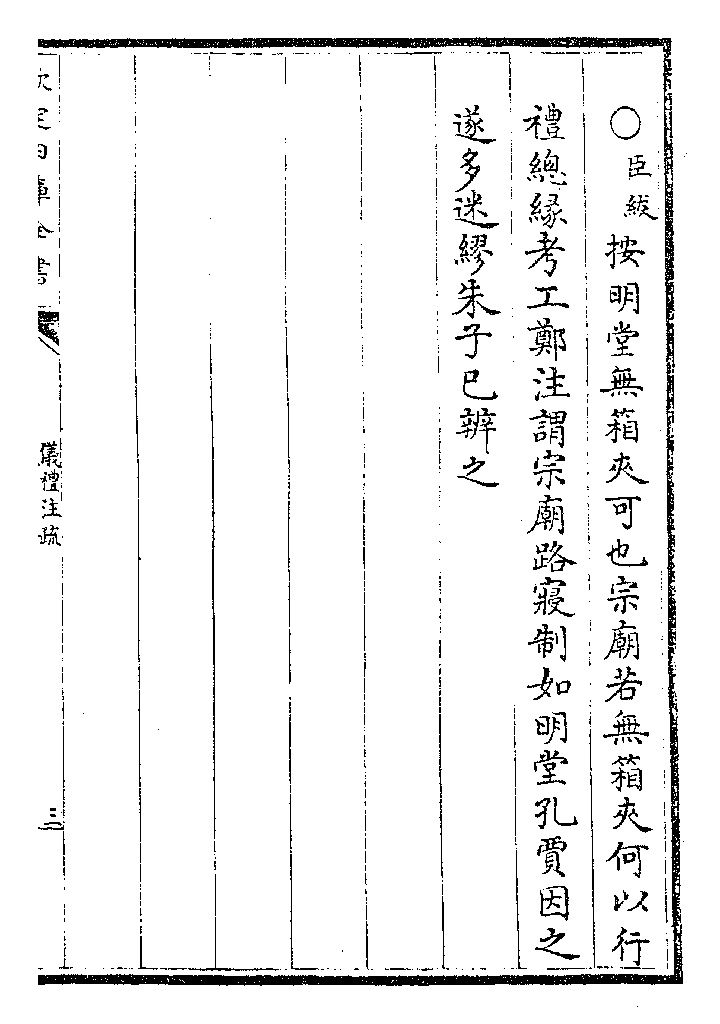 ○臣紱按明堂無箱夾可也宗廟若無箱夾何以行
禮總緣考工鄭注謂宗廟路寢制如明堂孔賈因之
遂多迷繆朱子已辨之
欽定四庫全書
儀禮注疏
三